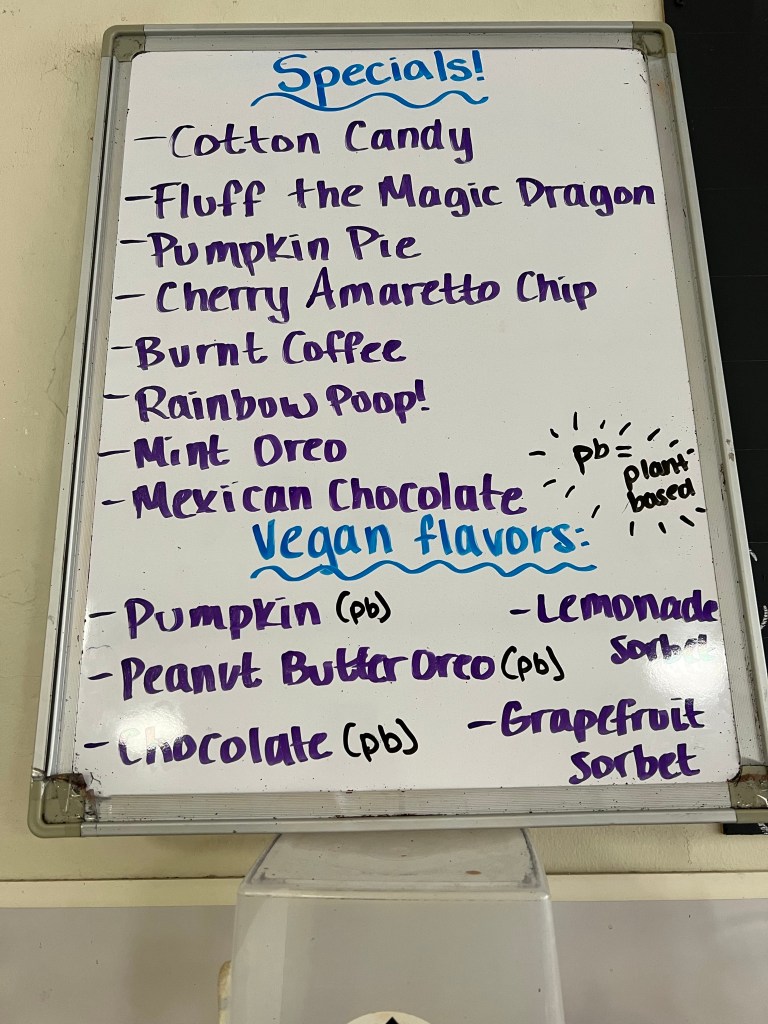 Specials!
- Cotton Candy
- Fluff the Magic Dragon
- Pumpkin Pie
- Cherry Amaretto Chip
- Burnt Coffee
- Rainbow Poop!
- Mint Oreo
- Mexican Chocolate
pb =
plant
based
Vegan flavors:
- Pumpkin (pb)
- Peanut Butter Oreo (pb)
- Chocolate (pb)
- Lemonade
Sorbet
- Grapefruit
Sorbet